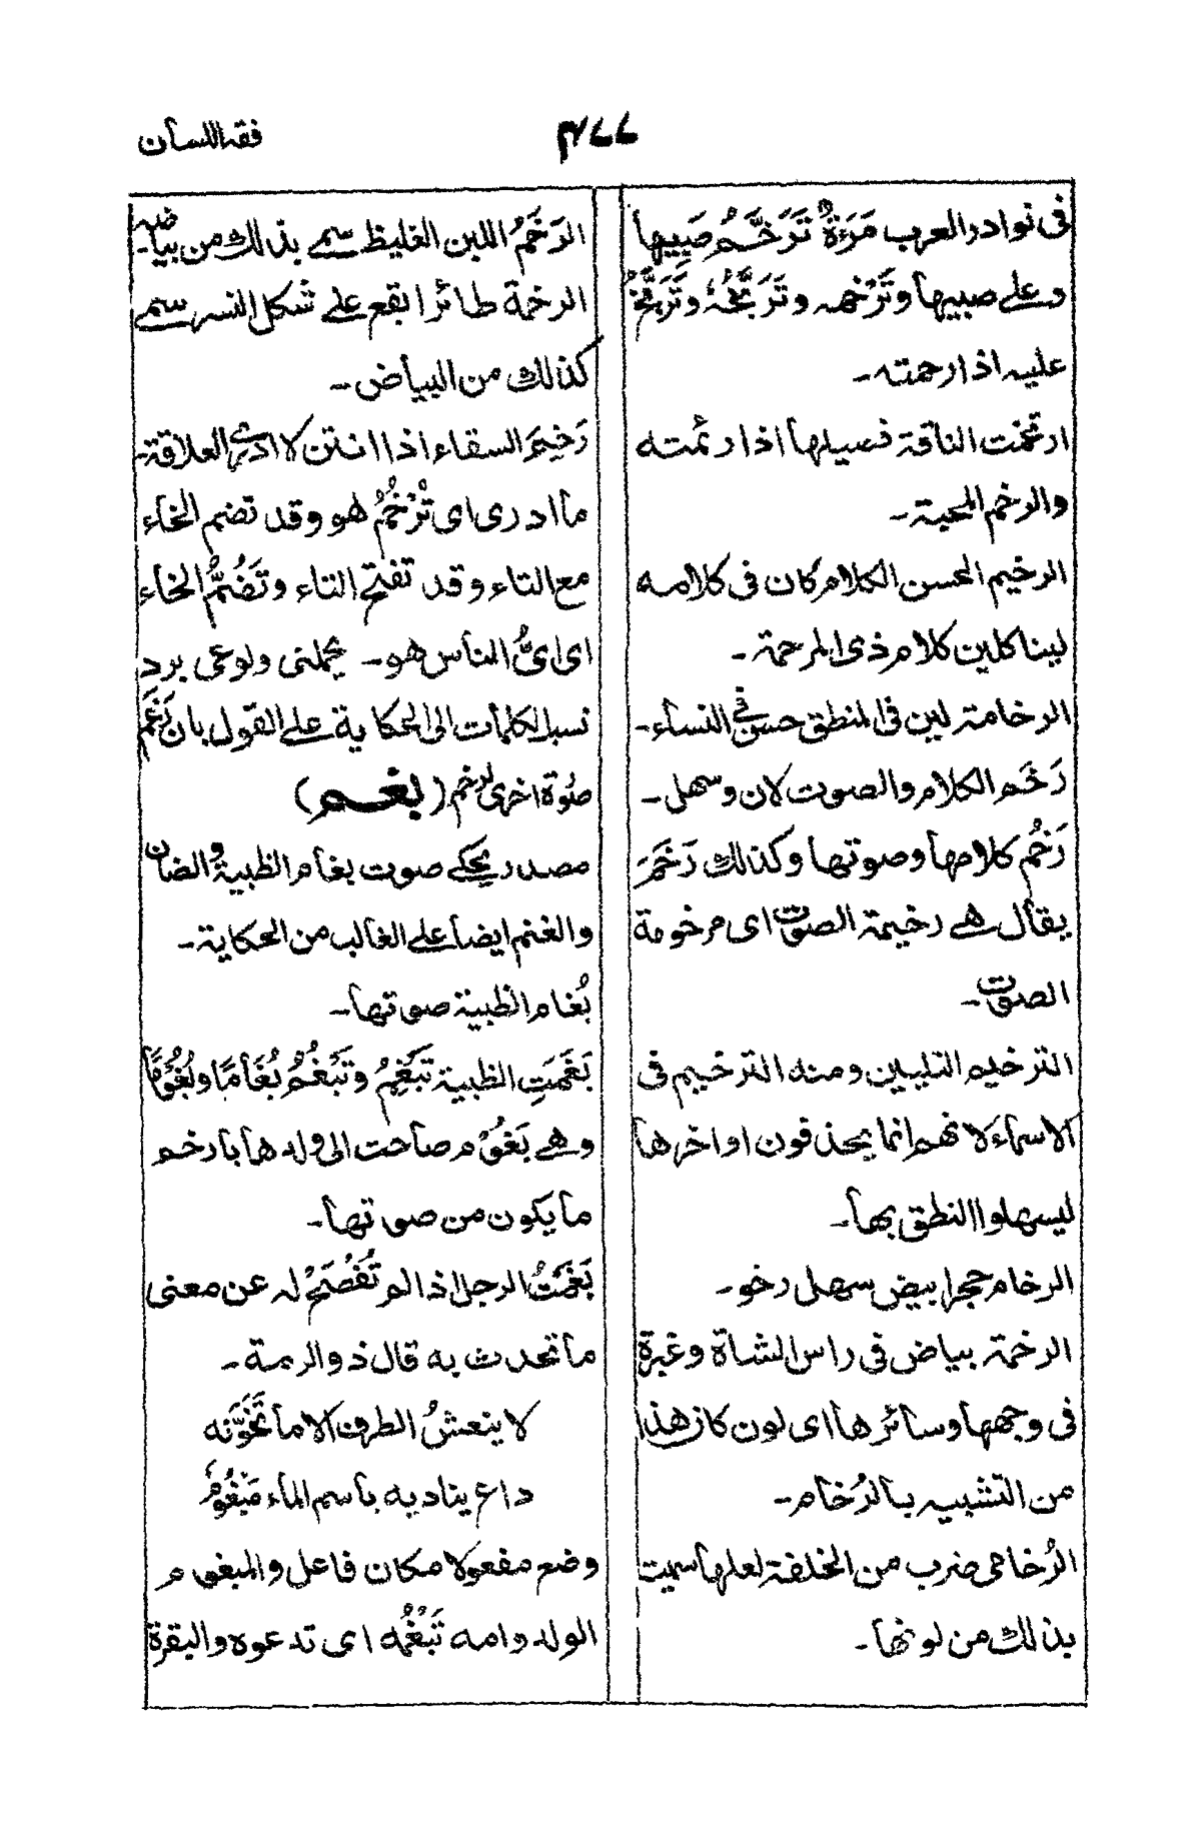 فقه اللسان
٣٧٧
فى نوادر العرب مَرَةٌ تَرَخَّمُ صَبِيها
وعلى صبيها وتَرْخمه وتَرَبَّخُهُ وتَرَبَّخُ
عليه اذا رحمته۔
ارتخمت الناقة فصيلها اذا رئمته
والرخم المحبة۔
الرخيم المحسن الكلام كان فى كلامه
لينا كلين كلام ذى المرحمة۔
الرخامة لين فى المنطق حسن فى النساء۔
رَخَم الكلام والصوت لان وسهل۔
رَخُم كلامها وصوتها وكذلك رَخَمَرَ
يقال هے رخيمة الصوت اى مرخومة
الصوت۔
الترخيم التليين ومنه الترخيم فى
الاسماء لانهم انما يحذفون اواخرها
ليسهلوا النطق بها۔
الرخام حجر ابيض سهل رخو۔
الرخمة بياض فى راس الشاة وغبرة
فى وجهها وسائرها اى لون كان هذا
من التشبيه بالرُخام۔
الرُخامى ضرب من الخلفة لعلها سميت
بذلك من لونها۔
الرَخَمُ اللبن الغليظ سمے بذلك من بياضه۔
الرخمة طائر ابقع علے شكل النسر سمے
كذلك من البياض۔
رَخِمَ السقاء اذا انتن لا ادرى العلاقة۔
ما ادرى اى تُرْخُمُ هو وقد تضم الخاء
مع التاء وقد تفتح التاء وتَضُمُّ الخاء
اى اىُّ الناس هو۔ يحملنى ولوعى برد
نسبل لكلمات الى الحكاية علے القول بان بَغَم
صُوة اخرى لرخم (بغم)
مصدر يحكے صوت بغام الظبية والضان
والغنم ايضا علے الغالب من الحكاية۔
بُغام الظبية صوتها۔
بَغَمَتِ الظبية تَبْغَمُ وتَبْغُمُ بُغَامًا وبُغُومًا
وهے بَغُوْم صاحت الى ولدها بارخم
ما يكون من صوتها۔
بَغَمْتُ الرجل اذا لم تُفْصَحْ له عن معنى
ما تحدث به قال ذو الرمة۔
لا ينعشُ الطرف الا ما تَخَوَّنَه
داع يناديه باسم الماء مَبْغُومُ
وضع مفعولا مكان فاعل والمبغوم
الولد وامه تَبْغُمُه اى تدعوه والبقرة